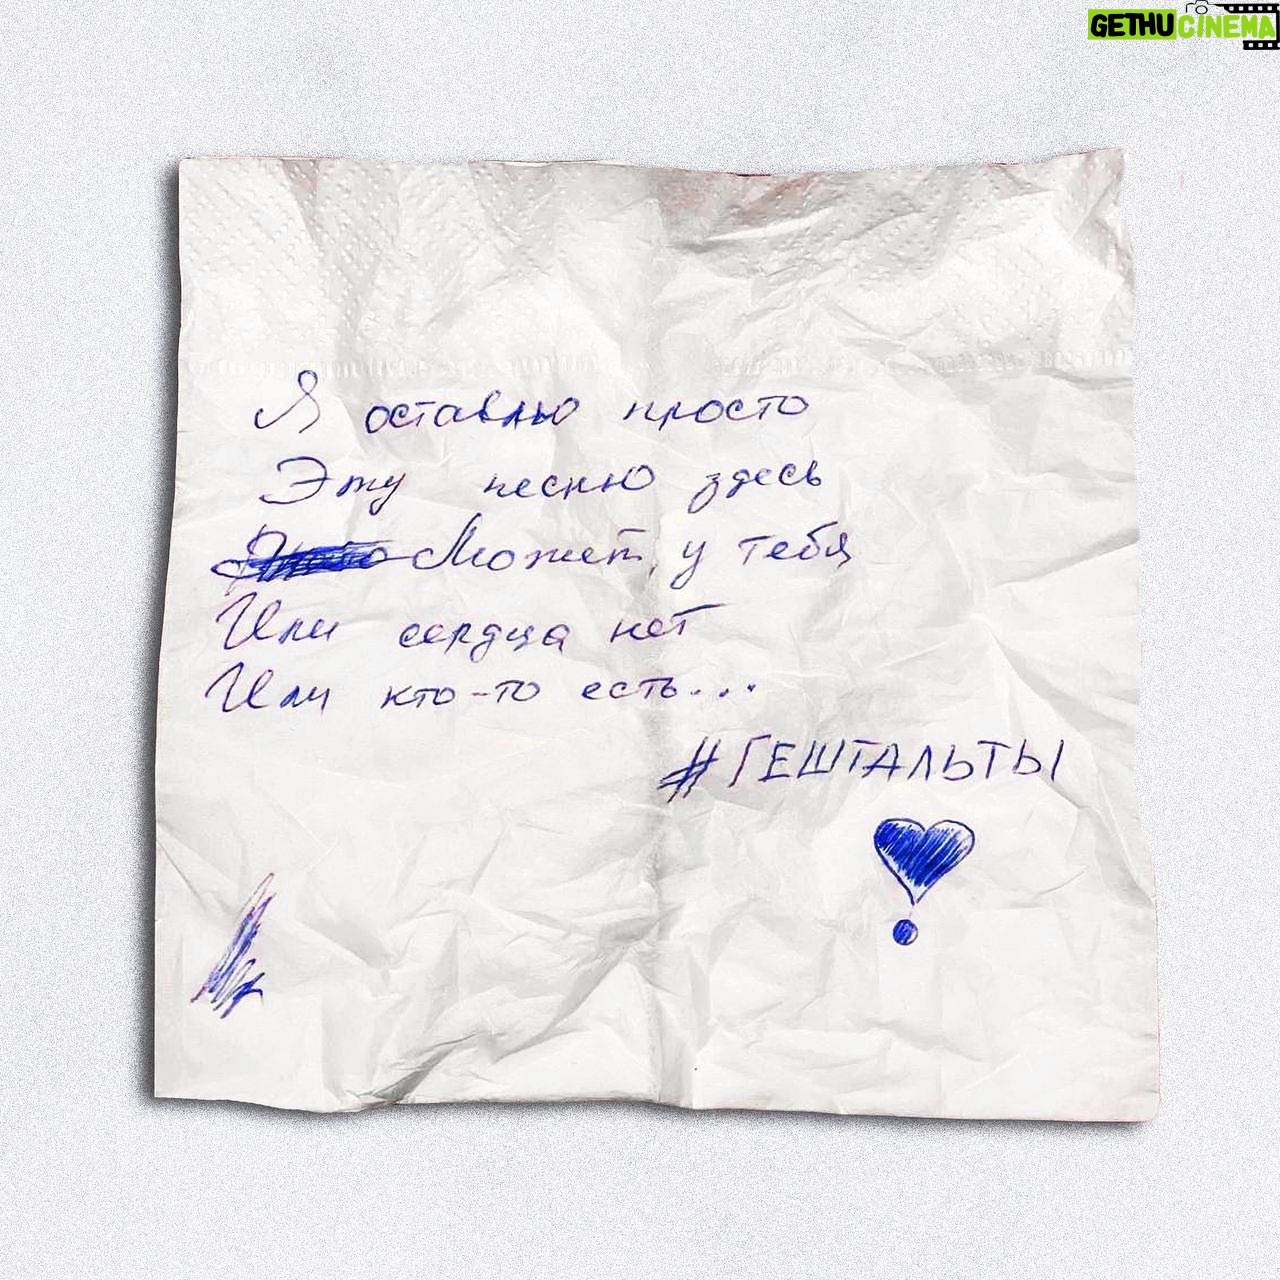 GETHUCINEMA
Я оставлю просто
Эту песню здесь
Может, у тебя
Или сердца нет
Или кто-то есть...
#ГЕШТАЛЬТЫ